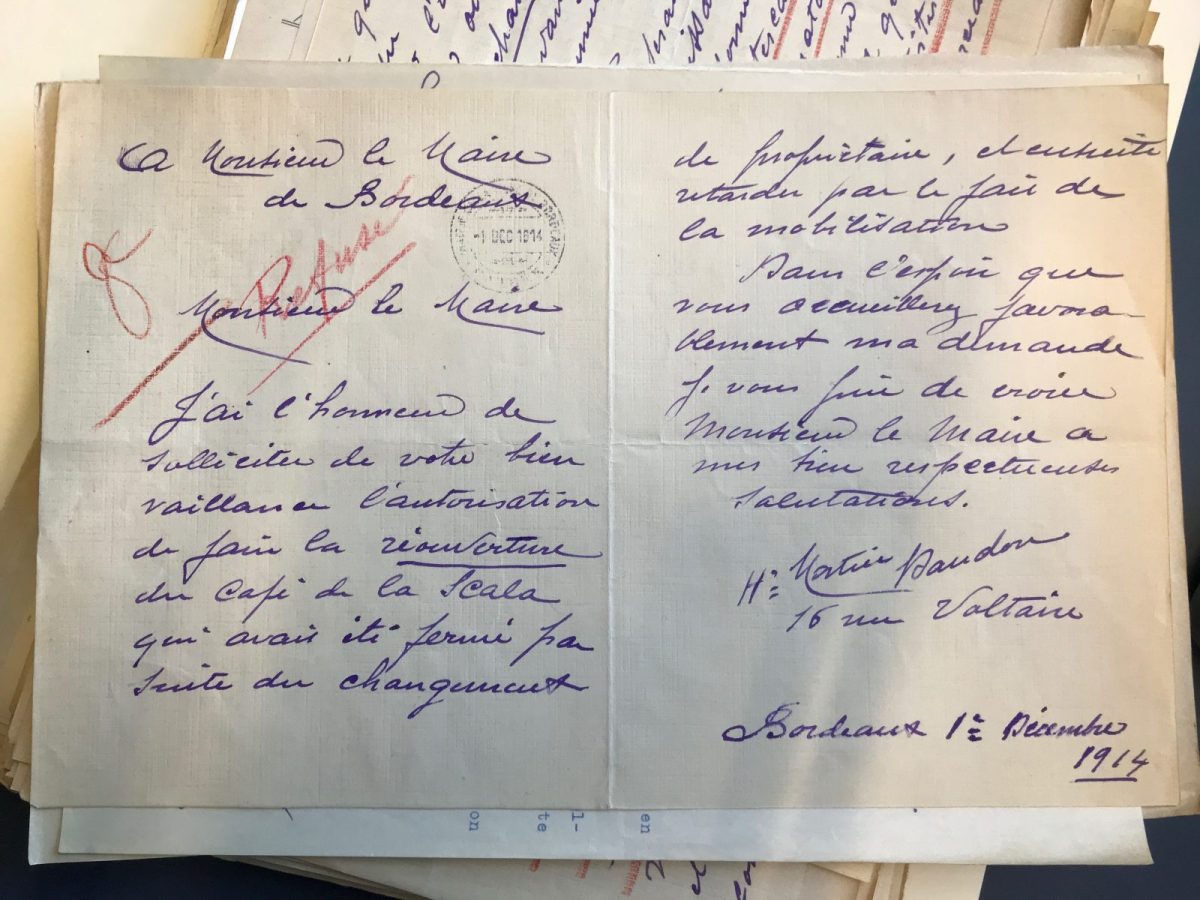 A Monsieur le Maire
de Bordeaux
1 DEC 1914
Refusé
Monsieur le Maire
J'ai l'honneur de
solliciter de votre bien
vaillance l'autorisation
de faire la réouverture
du Café de la Scala
qui avait été fermé par
suite du changement
de propriétaire, et ensuite
retarder par le fait de
la mobilisation
Dans l'espoir que
vous accueillerez favora-
blement ma demande
je vous prie de croire
Monsieur le Maire a
mes bien respectueuses
salutations.
Hri Mortier
16 rue Voltaire
Bordeaux 1er Décembre
1914
en
l-
te
on